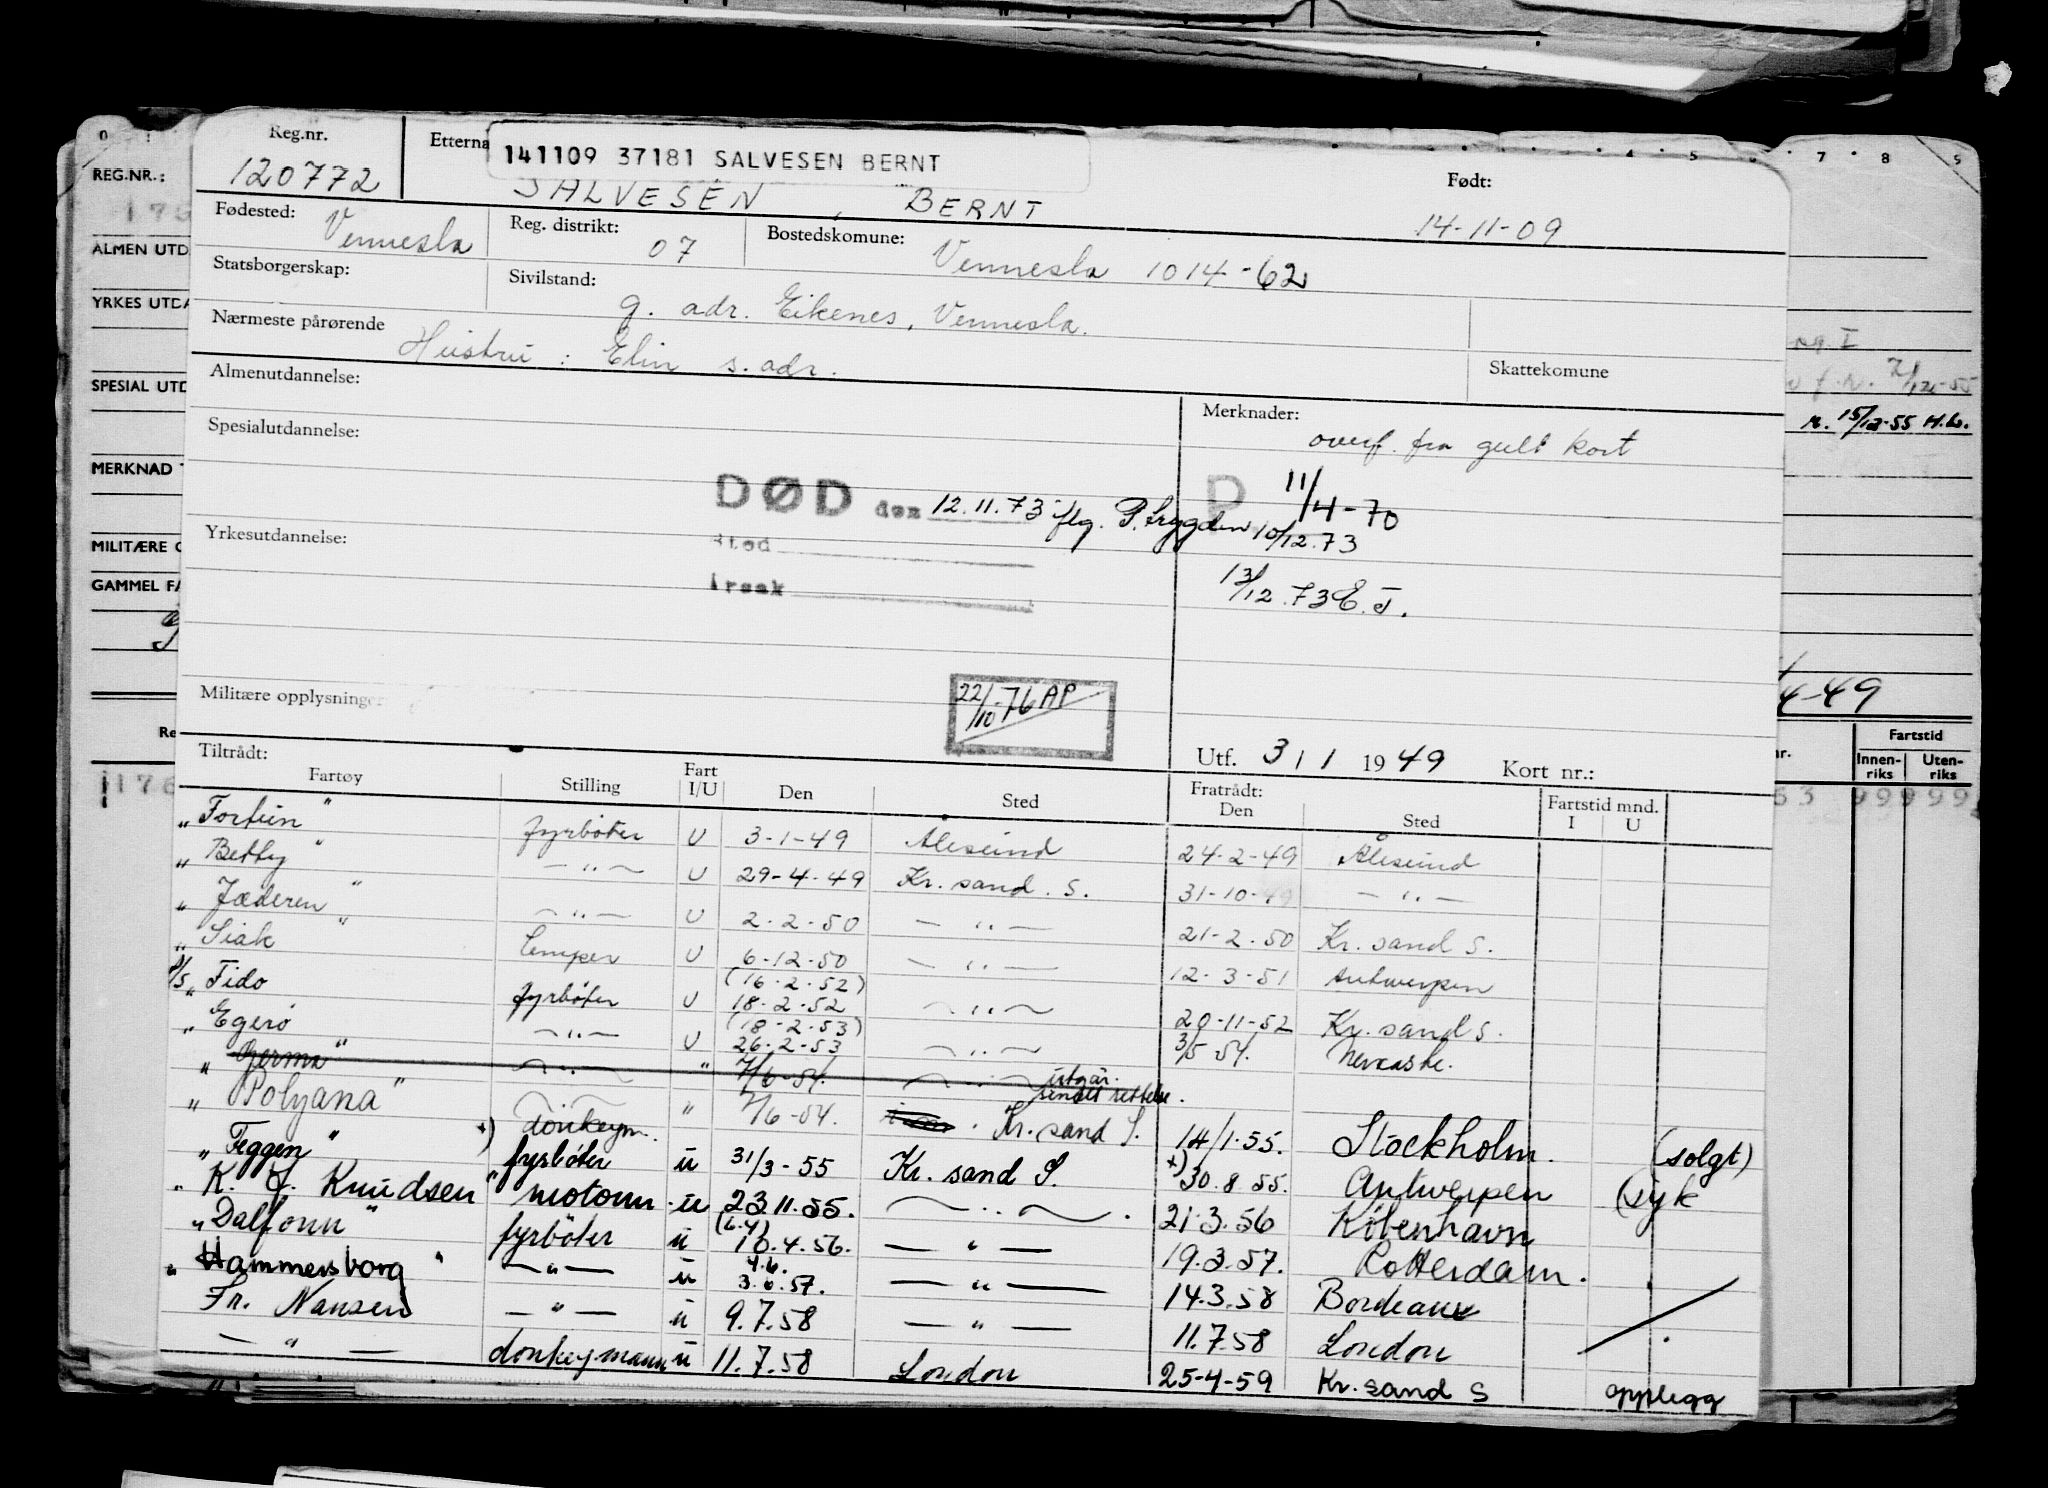 Reg.nr. Etterna 141109 37181 SALVESEN BERNT Født:
120772 SALVESEN, BERNT 14-11-09
Fødested: Vennesla Reg. distrikt: 07 Bostedskomune: Vennesla 1014-62
Statsborgerskap: Sivilstand: g. adr. Eikenes, Vennesla.
Nærmeste pårørende Hustru: Elin s. adr. Skattekomune
Almenutdannelse: Merknader:
overf. fra gult kort
Spesialutdannelse:
D 11/4-70
DØD den 12.11.73 iflg. P. trygden 10/12.73
Yrkesutdannelse: Sted
Årsak 13/12.73 E.J.
Militære opplysninger 22/10-76 AP
Utf. 3/1 1949 Kort nr.:
Tiltrådt: Fratrådt:
Fartøy Stilling Fart I/U Den Sted Den Sted Fartstid mnd. I U
"Fortun" fyrbøter U 3-1-49 Ålesund 24-2-49 Ålesund
"Betty" — " — U 29-4-49 Kr. sand. S. 31-10-49 — " —
"Jæderen" — " — U 2-2-50 — " — 21-2-50 Kr. sand S.
"Siak" lemper U 6-12-50 — " — 12-3-51 Antwerpen
D/S "Fido fyrbøter U (16-2-52) 18-2-52 — " — 20-11-52 Kr. sand S.
"Egerø — " — U (18-2-53) 26-2-53 — " — 3/5 54. Newcastle.
" — " — " 7/6-54. — " — utgår. sendt rettelse.
"Polyana" — " — " 7/6-54. Kr. sand S. 14/1-55. Stockholm. (solgt)
"Feggen" x) donkeym. fyrbøter u 31/3-55 Kr. sand S. x) 30.8.55. Antwerpen (syk
"K. J. Knudsen" motorm. u 23.11.55. — " — 21.3.56 København
"Dalfonn" fyrbøter u (6.4) 10.4.56. — " — 19.3.57. Rotterdam.
"Hammersborg" — " — u 4.6. 3.6.57. — " — 14.3.58 Bordeaux
Fr. Nansen — " — u 9.7.58 — " — 11.7.58 London
— " — donkeymann u 11.7.58 London 25-4-59 Kr. sand S opplegg
REG.NR.:
ALMEN UTD
YRKES UTDA
SPESIAL UTD
MERKNAD T
MILITÆRE O
GAMMEL FA
7/12-55
15/12-55 H.L.
4-49
Fartstid
Innen-riks Uten-riks
53 99999